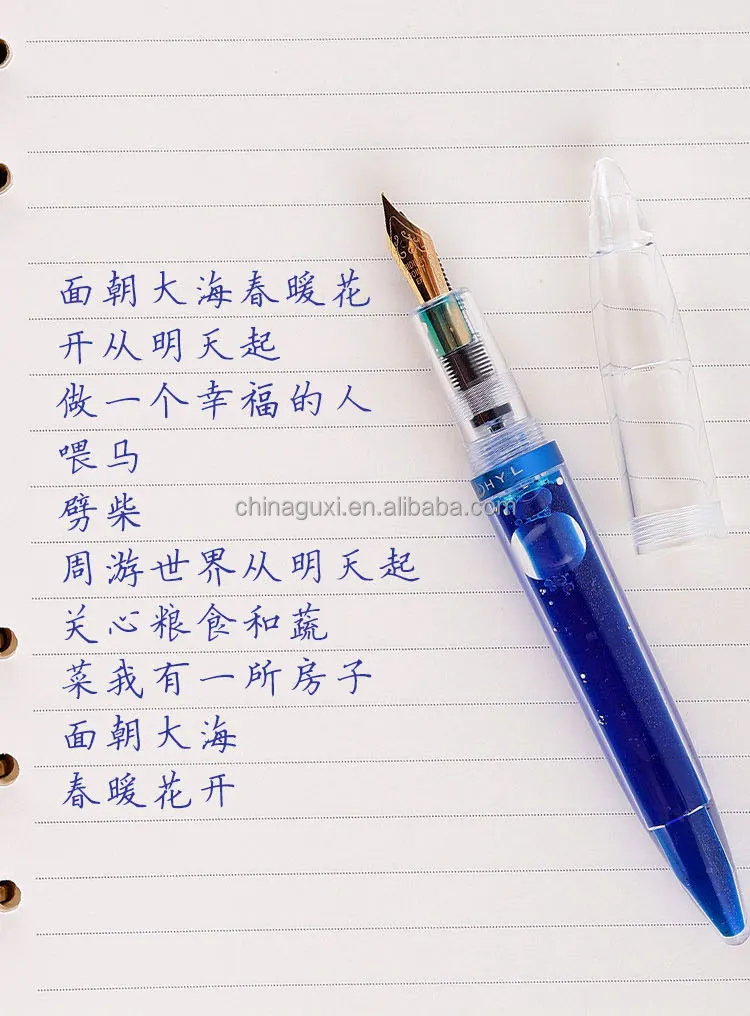 面朝大海春暖花
开从明天起
做一个幸福的人
喂马
劈柴
周游世界从明天起
关心粮食和蔬
菜我有一所房子
面朝大海
春暖花开
HYL
chinaguxi.en.alibaba.com